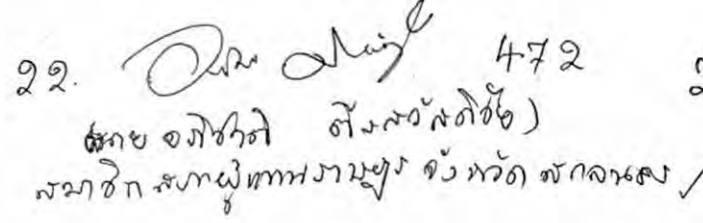 22. 472
(นาย อภิชาติ ตีรสวัสดิชัย)
สมาชิกสภาผู้แทนราษฎร จังหวัด สกลนคร